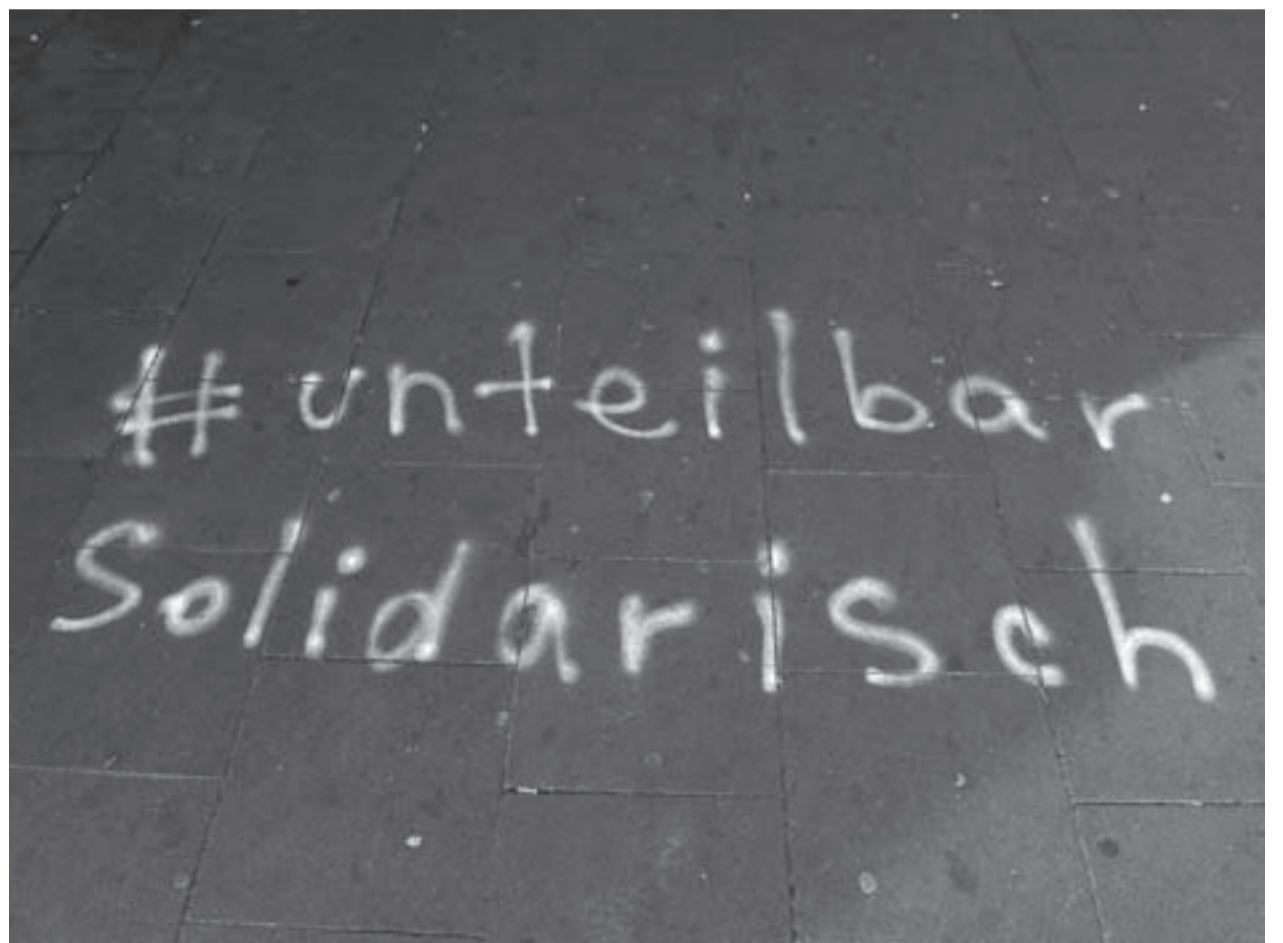 #unteilbar
Solidarisch